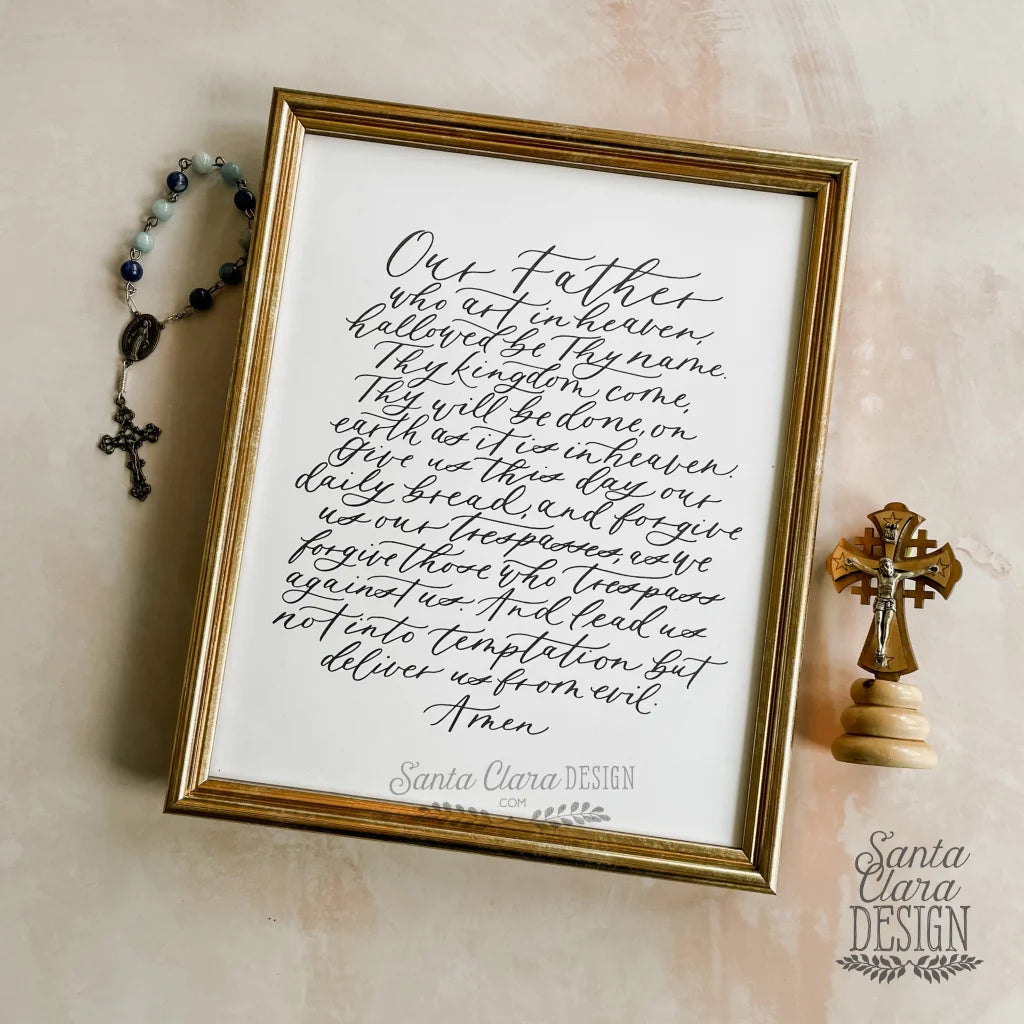 Our Father
who art in heaven,
hallowed be Thy name.
Thy kingdom come,
Thy will be done, on
earth as it is in heaven.
Give us this day our
daily bread, and forgive
us our trespasses, as we
forgive those who trespass
against us. And lead us
not into temptation but
deliver us from evil.
Amen
Santa Clara DESIGN
COM
Santa
Clara
DESIGN